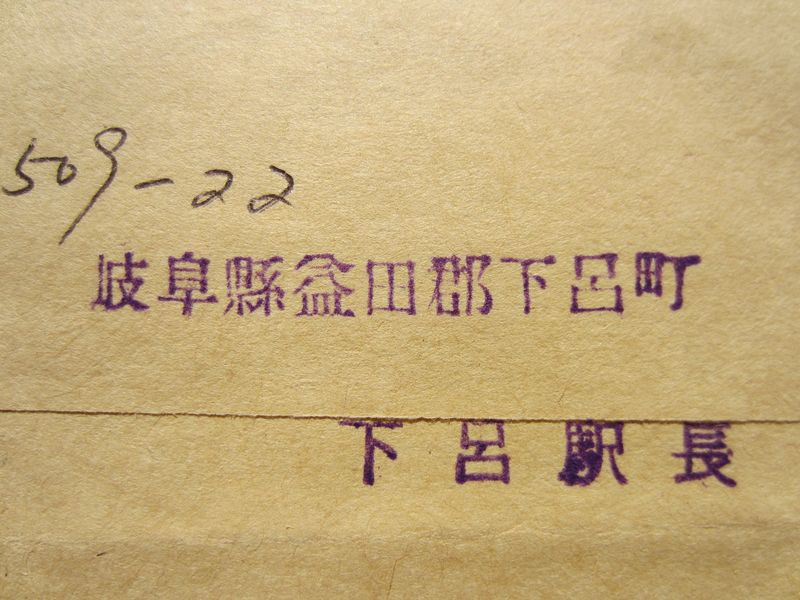 509-22
岐阜縣益田郡下呂町
下呂駅長